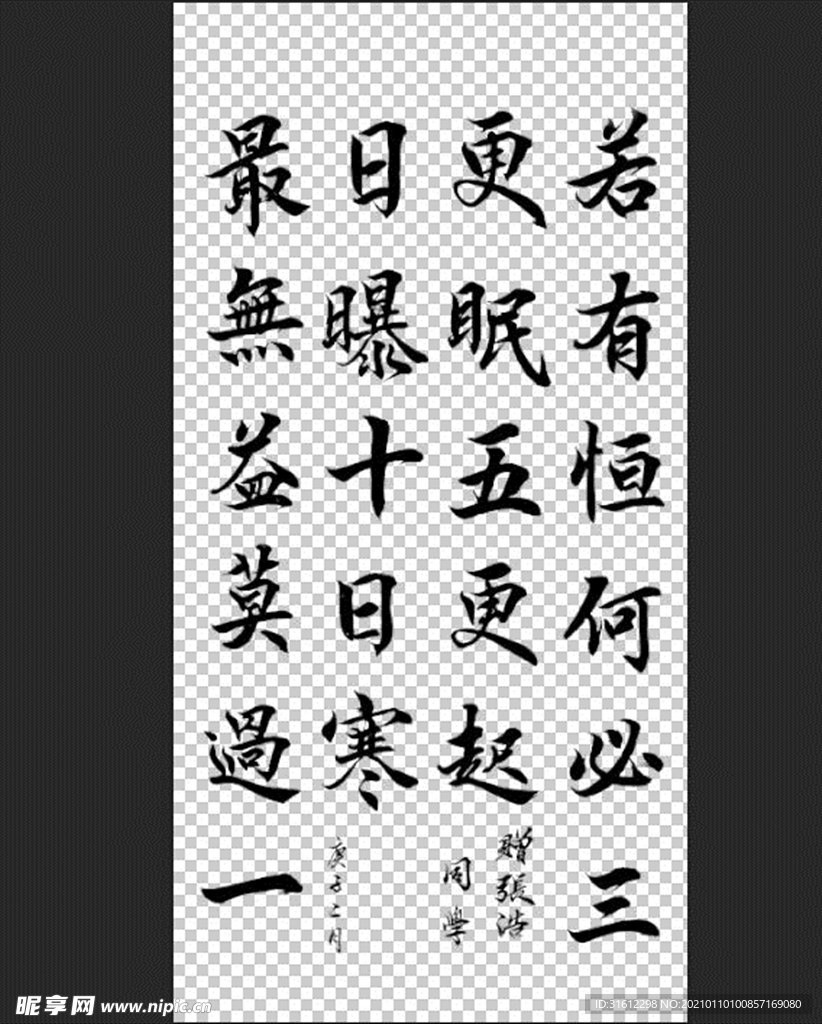 若有恒何必三
更眠五更起
贈張浩
同學
最無益莫過一
日曝十日寒
庚子二月
昵享网 www.nipic.cn
ID:31612298 NO:20210110100857169080